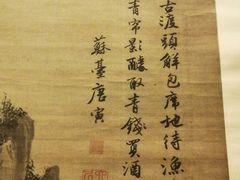 古渡頭解包席地待漁
青帘影醵取青錢買酒
蘇臺唐寅